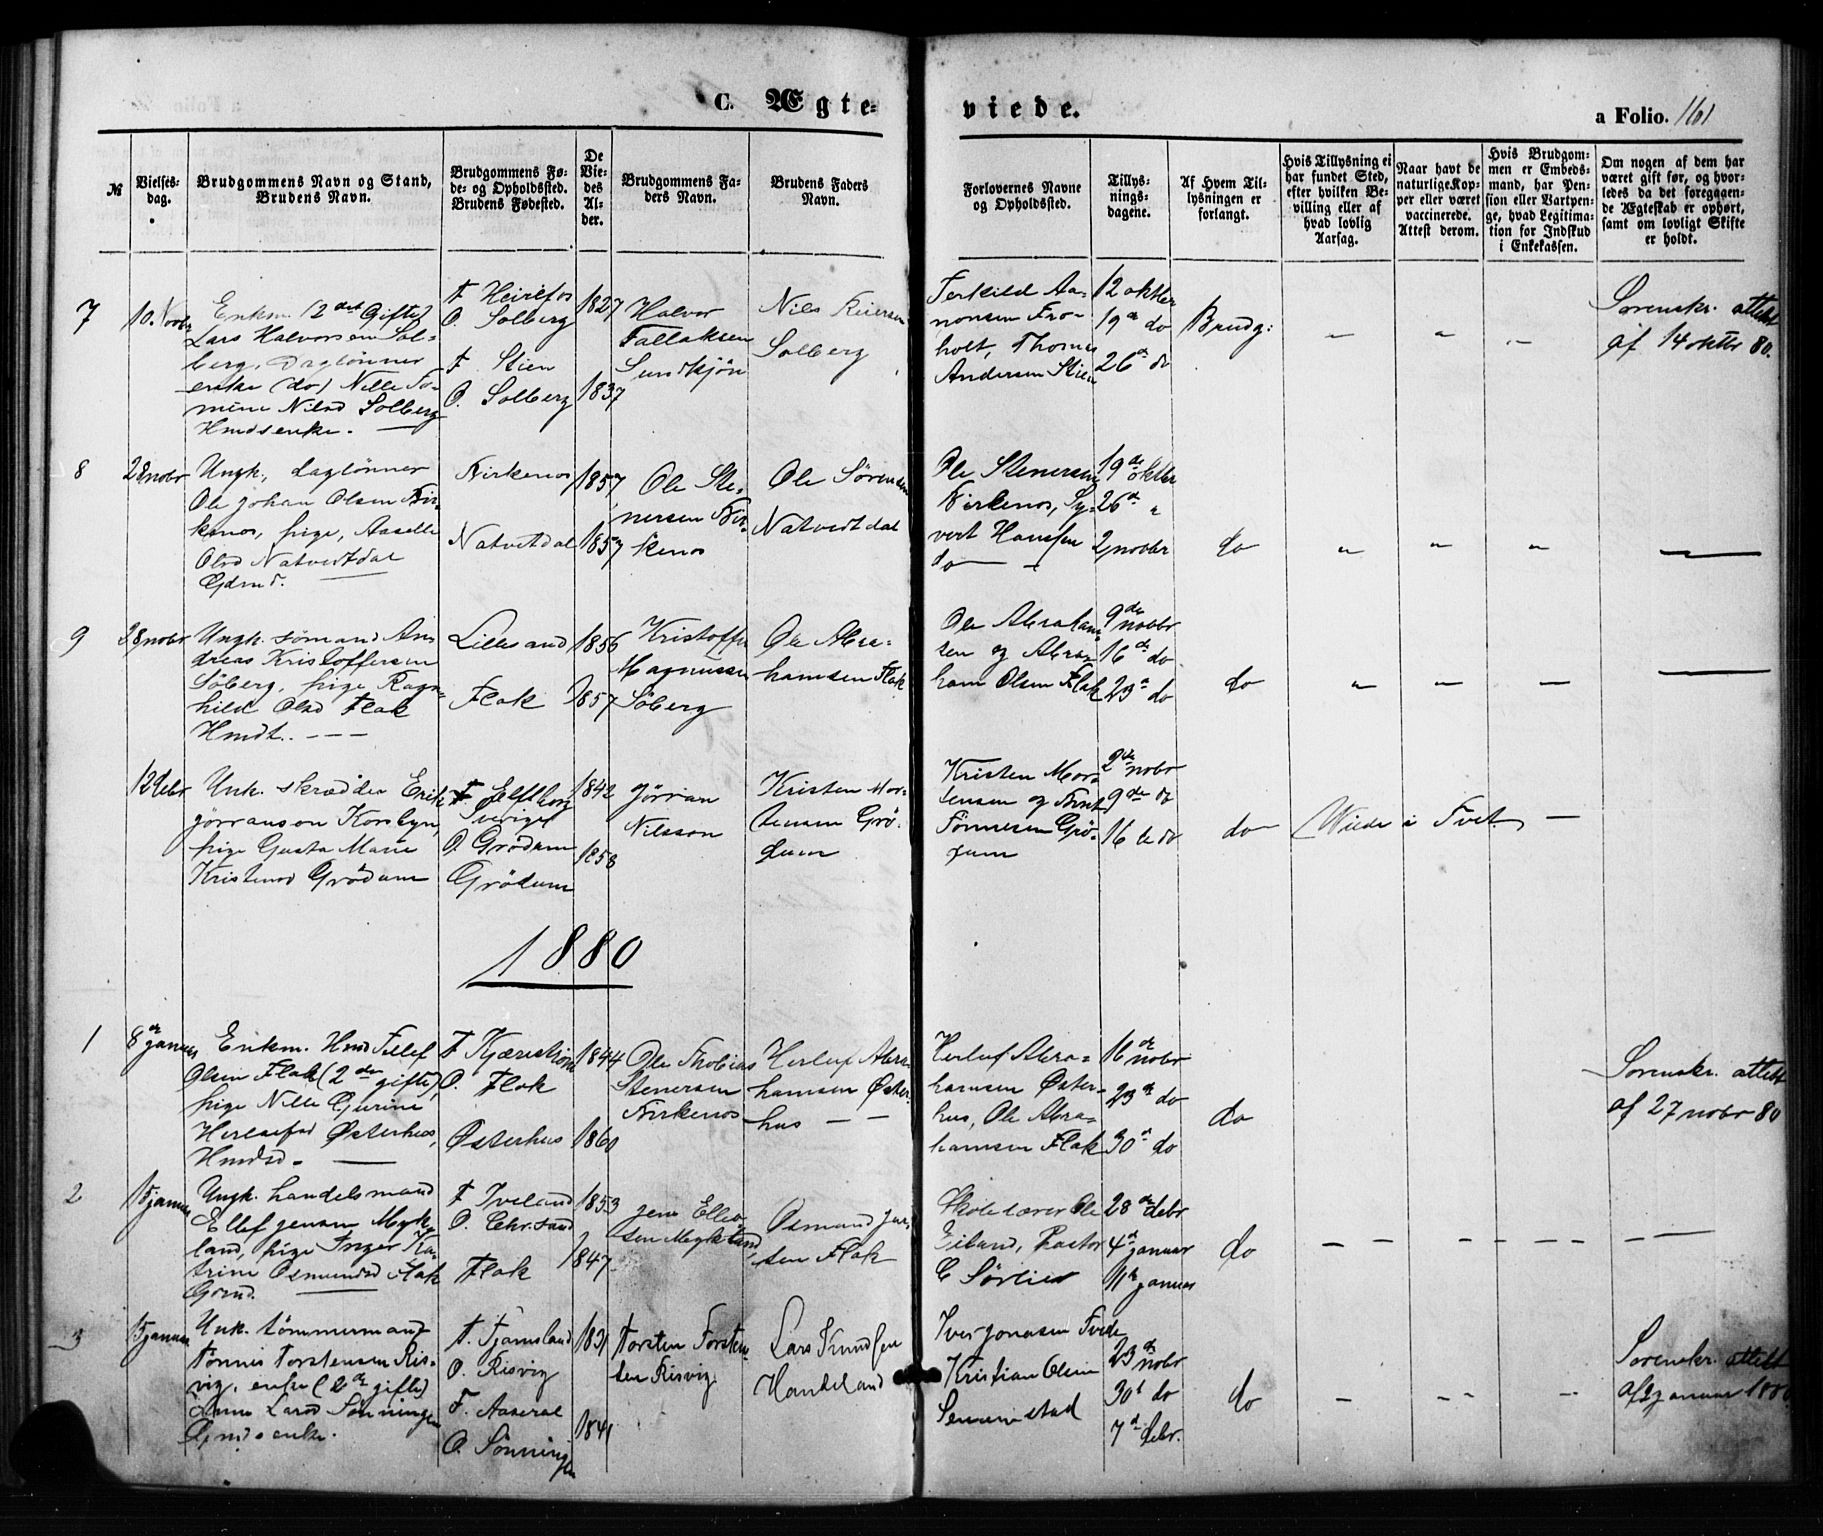 C. Ægte=
viede.
a Folio. 161
№
Vielses-
dag.
Brudgommens Navn og Stand,
Brudens Navn.
Brudgommens Fø-
de- og Opholdssted.
Brudens Fødested.
De
Vie-
des
Al-
der.
Brudgommens Fa-
ders Navn.
Brudens Faders
Navn.
Forlovernes Navne
og Opholdssted.
Tillys-
nings-
dagene.
Af Hvem Til-
lysningen er
forlangt.
Hvis Tillysning ei
har fundet Sted,
efter hvilken Be-
villing eller af
hvad lovlig
Aarsag.
Naar havt de
naturlige Kop-
per eller været
vaccinerede.
Attest derom.
Hvis Brudgom-
men er Embeds-
mand, har Pen-
sion eller Vartpen-
ge, hvad Legitima-
tion for Indskud
i Enkekassen.
Om nogen af dem har
været gift før, og hvor-
ledes da det foregaaen-
de Ægteskab er ophørt,
samt om lovligt Skifte
er holdt.
7
10. Novbr
Enkm. (2det Gifte)
Lars Halvorsen Sol-
berg, Daglønner
enke (do) Nille To-
mine Nilsd Solberg
Hmdsenke. —
F Heirefos
O. Solberg
F Stien
O. Solberg
1827
1837
Halvor
Tallaksen
Sundtjøn
Nils Reiersen
Solberg
Terkild Aa-
nonsen Fro-
holt, Thomas
Andersen Stien
12 oktbr
19de do
26de do
Brudg:
Sorenskr. attest
af 14 oktbr 80.
8
28 nobr
Ungk. daglønner
Ole Johan Olsen Bir-
kenos, pige, Aaselle
Olsd Natvedtdal
Gdmd. —
Birkenos
Natvetdal
1857
1857
Ole Ste-
nersen Bir-
kenos
Ole Sørensen
Natvedtdal
Ole Stenersen
Birkenos, Sy-
vert Hansen
do —
19de oktbr
26de "
2 novbr
do
9
28 nobr
Ungk. sømand An-
dreas Kristoffersen
Söberg, pige Ragn-
hild Olsd Flak
Hmdt. - - -
Lillesand
Flak
1856
1857
Kristoffer
Magnussen
Söberg
Ole Abra-
hamsen Flak
Ole Abraham-
sen og Abra-
ham Olsen Flak
9de nobr
16de do
23de do
do
12 debr
Unk. skrædder Erik
Jørranson Korsbyn,
pige Gusta Marie
Kristensd Grödum
Sverige
O. Grödum
Grödum
1842
1858
Jörran
Nilsson
Kristen Mor-
tensen Grö-
dum
Kristen Mor-
tensen og Bernt
Tönnesen Grö-
dum
2de nobr
9de do
16 de do
do
Viede i Tvet. —
1880
1
8de januar
Enkm. Hmd Tellef
Olsen Flak (2den gifte)
pige Nille Gurine
Herlufsd Østerhus,
Hmdsd. —
O. Flak
Østerhus
1844
1860
Ole Thobias
Stenersen
Birkenos
Herluf Abra-
hamsen Øster-
hus — —
Herluf Abra-
hamsen Øster-
hus, Ole Abra-
hamsen Flak
16de nobr
23de do
30de do
do
Sorenskr. attest
af 27 nobr 80
2
15 januar
Ungk. handelsmand
Ellef Jensen Mykland
land, pige Inger Ka-
trine Osmundsd Flak
Gdmd. —
F Iveland
O. Chr.sand
Flak
1853
1847
Jens Ellev-
sen Mykland
Osmund Jen-
sen Flak
Skolelærer Ole
Eiland, Pastor
C Sörlie
28de debr
4de januar
11te januar
do
3
15 januar
Unk. tömmermand
Tönnis Torstensen Ris-
vig, enke (2de gifte)
Anne Larsd Sönningen
Gmdsenke.
F. Fjømsland
O. Risvig
F. Aaseral
O. Sönningen
1831
1841
Torsten Torsten-
sen Risvig
Lars Knudsen
Handeland
Iver Jonasen Tvede
Kristian Olsen
23de nobr
30te do
7de debr.
do
Sorenskr. attest